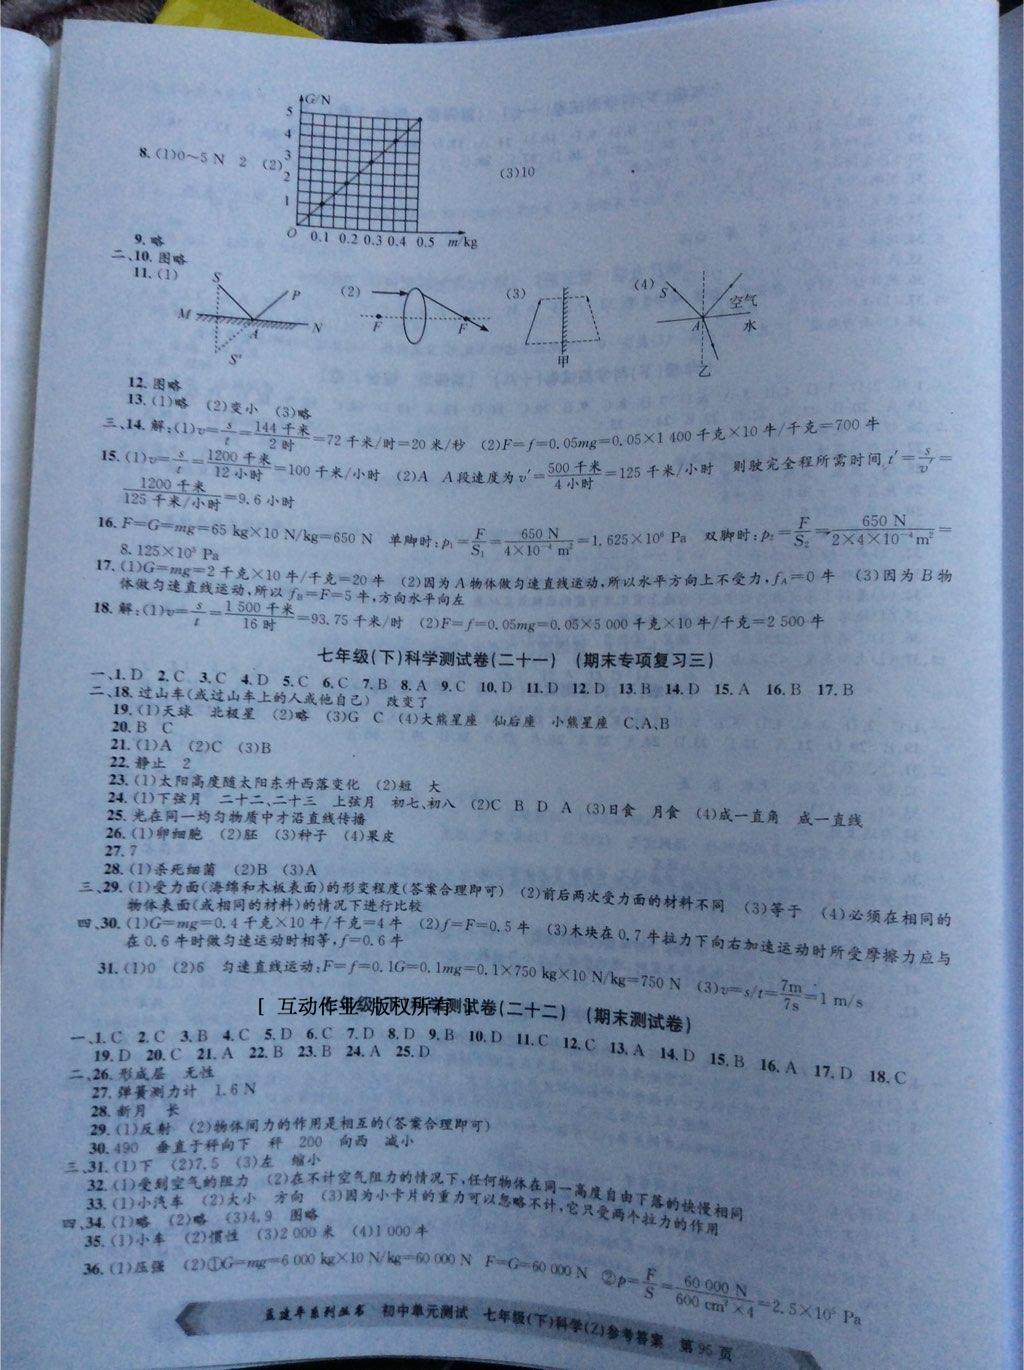 G/N
5
4
3
2
1
O 0.1 0.2 0.3 0.4 0.5 m/kg
8.(1)0～5 N 2 (2) (3)10
9.略
二、10.图略
11.(1) (2) (3) (4)
S P M A N S′
F F
甲
S 空气 A 水 乙
12.图略
13.(1)略 (2)变小 (3)略
三、14.解:(1)v=s/t=144千米/2时=72千米/时=20米/秒 (2)F=f=0.05mg=0.05×1 400千克×10牛/千克=700牛
15.(1)v=s/t=1200千米/12小时=100千米/小时 (2)A A段速度为v′=500千米/4小时=125千米/小时 则驶完全程所需时间t′=s/v′=
1200千米/125千米/小时=9.6小时
16.F=G=mg=65 kg×10 N/kg=650 N 单脚时:p₁=F/S₁=650 N/4×10⁻⁴ m²=1.625×10⁶ Pa 双脚时:p₂=F/S₂=650 N/2×4×10⁻⁴ m²=
8.125×10⁵ Pa
17.(1)G=mg=2千克×10牛/千克=20牛 (2)因为A物体做匀速直线运动,所以水平方向上不受力,fA=0牛 (3)因为B物
体做匀速直线运动,所以fB=F=5牛,方向水平向左
18.解:(1)v=s/t=1 500千米/16时=93.75千米/时 (2)F=f=0.05mg=0.05×5 000千克×10牛/千克=2 500牛
七年级(下)科学测试卷(二十一) (期末专项复习三)
一、1.D 2.C 3.C 4.D 5.C 6.C 7.B 8.A 9.C 10.D 11.D 12.D 13.B 14.D 15.A 16.B 17.B
二、18.过山车(或过山车上的人或他自己) 改变了
19.(1)天球 北极星 (2)略 (3)G C (4)大熊星座 仙后座 小熊星座 C、A、B
20.B C
21.(1)A (2)C (3)B
22.静止 2
23.(1)太阳高度随太阳东升西落变化 (2)短 大
24.(1)下弦月 二十二、二十三 上弦月 初七、初八 (2)C B D A (3)日食 月食 (4)成一直角 成一直线
25.光在同一均匀物质中才沿直线传播
26.(1)卵细胞 (2)胚 (3)种子 (4)果皮
27.7
28.(1)杀死细菌 (2)B (3)A
三、29.(1)受力面(海绵和木板表面)的形变程度(答案合理即可) (2)前后两次受力面的材料不同 (3)等于 (4)必须在相同的
物体表面(或相同的材料)的情况下进行比较
四、30.(1)G=mg=0.4千克×10牛/千克=4牛 (2)f=F=0.5牛 (3)木块在0.7牛拉力下向右加速运动时所受摩擦力应与
在0.6牛时做匀速运动时相等,f=0.6牛
31.(1)0 (2)6 匀速直线运动:F=f=0.1G=0.1mg=0.1×750 kg×10 N/kg=750 N (3)v=s/t=7m/7s=1 m/s
[ 互动作业 版权所有 ]测试卷(二十二) (期末测试卷)
一、1.C 2.C 3.B 4.C 5.D 6.C 7.D 8.D 9.B 10.D 11.C 12.C 13.A 14.D 15.B 16.A 17.D 18.C
19.D 20.C 21.A 22.B 23.B 24.A 25.D
二、26.形成层 无性
27.弹簧测力计 1.6 N
28.新月 长
29.(1)反射 (2)物体间力的作用是相互的(答案合理即可)
30.490 垂直于秤向下 秤 200 向西 减小
三、31.(1)下 (2)7.5 (3)左 缩小
32.(1)受到空气的阻力 (2)在不计空气阻力的情况下,任何物体在同一高度自由下落的快慢相同
33.(1)小汽车 (2)大小 方向 (3)因为小卡片的重力可以忽略不计,它只受两个拉力的作用
四、34.(1)略 (2)略 (3)4.9 图略
35.(1)小车 (2)惯性 (3)2 000米 (4)1 000牛
36.(1)压强 (2)①G=mg=6 000 kg×10 N/kg=60 000 N F=G=60 000 N ②p=F/S=60 000 N/600 cm²×4=2.5×10⁵ Pa
孟建平系列丛书 初中单元测试 七年级(下)科学(Z)参考答案 第95页